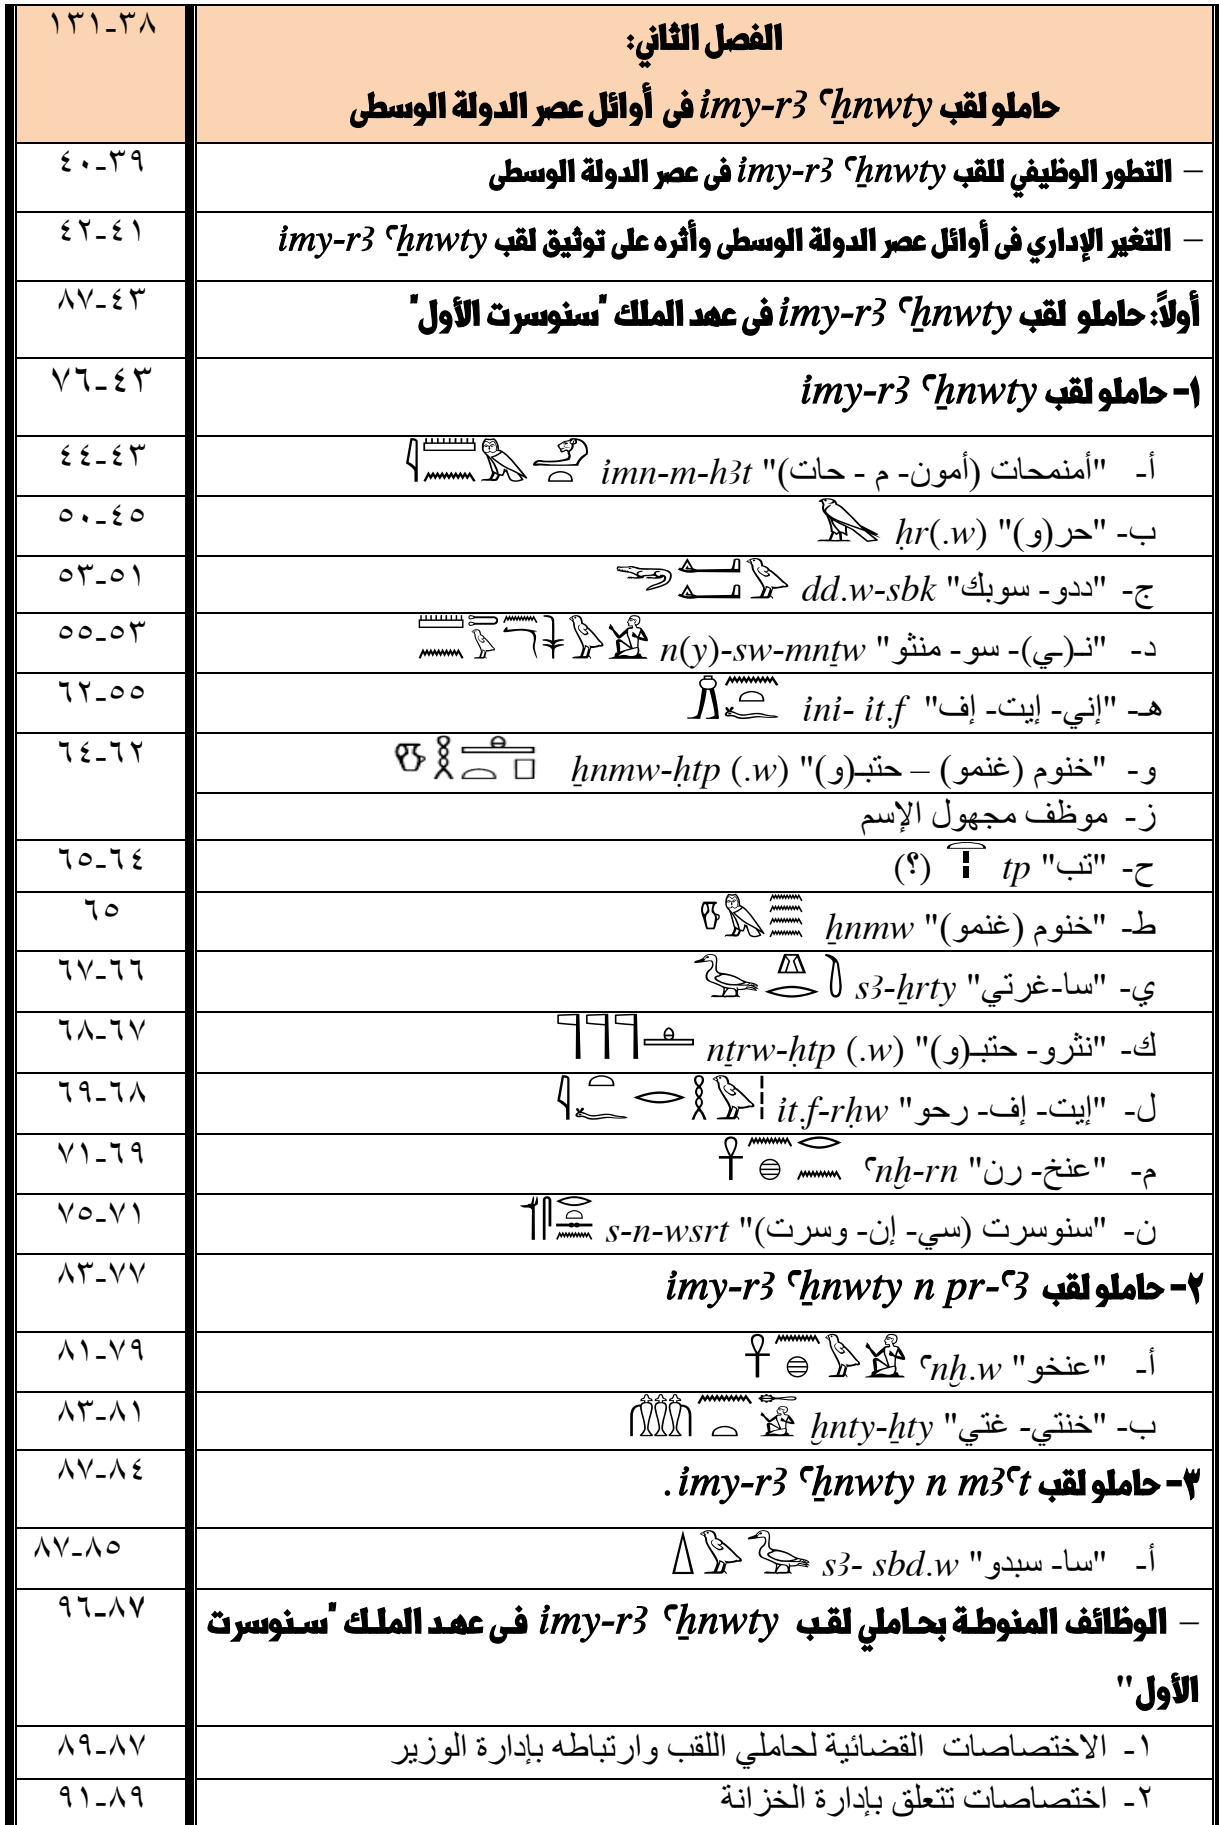 الفصل الثاني: ١٣١-٣٨
حاملو لقب imy-r3 ꜥẖnwty فى أوائل عصر الدولة الوسطى
– التطور الوظيفي للقب imy-r3 ꜥẖnwty فى عصر الدولة الوسطى ٤٠-٣٩
– التغير الإداري فى أوائل عصر الدولة الوسطى وأثره على توثيق لقب imy-r3 ꜥẖnwty ٤٢-٤١
أولاً: حاملو لقب imy-r3 ꜥẖnwty فى عهد الملك "سنوسرت الأول" ٨٧-٤٣
١- حاملو لقب imy-r3 ꜥẖnwty ٧٦-٤٣
أ- "أمنمحات (أمون- م - حات)" imn-m-h3t ٤٤-٤٣
ب- "حر(و)" ḥr(.w) ٥٠-٤٥
ج- "ددو- سوبك" dd.w-sbk ٥٣-٥١
د- "نـ(ـي)- سو- منثو" n(y)-sw-mnṯw ٥٥-٥٣
هـ- "إني- إيت- إف" ini- it.f ٦٢-٥٥
و- "خنوم (غنمو) – حتبـ(و)" ẖnmw-ḥtp (.w) ٦٤-٦٢
ز- موظف مجهول الإسم
ح- "تب" tp (؟) ٦٥-٦٤
ط- "خنوم (غنمو)" ẖnmw ٦٥
ي- "سا-غرتي" s3-ẖrty ٦٧-٦٦
ك- "نثرو- حتبـ(و)" nṯrw-ḥtp (.w) ٦٨-٦٧
ل- "إيت- إف- رحو" it.f-rḥw ٦٩-٦٨
م- "عنخ- رن" ꜥnḫ-rn ٧١-٦٩
ن- "سنوسرت (سي- إن- وسرت)" s-n-wsrt ٧٥-٧١
٢- حاملو لقب imy-r3 ꜥẖnwty n pr-ꜥ3 ٨٣-٧٧
أ- "عنخو" ꜥnḫ.w ٨١-٧٩
ب- "خنتي- غتي" ḫnty-ẖty ٨٣-٨١
٣- حاملو لقب imy-r3 ꜥẖnwty n m3ꜥt. ٨٧-٨٤
أ- "سا- سبدو" s3- sbd.w ٨٧-٨٥
– الوظائف المنوطة بحاملي لقب imy-r3 ꜥẖnwty فى عهد الملك "سنوسرت ٩٦-٨٧
الأول"
١- الاختصاصات القضائية لحاملي اللقب وارتباطه بإدارة الوزير ٨٩-٨٧
٢- اختصاصات تتعلق بإدارة الخزانة ٩١-٨٩